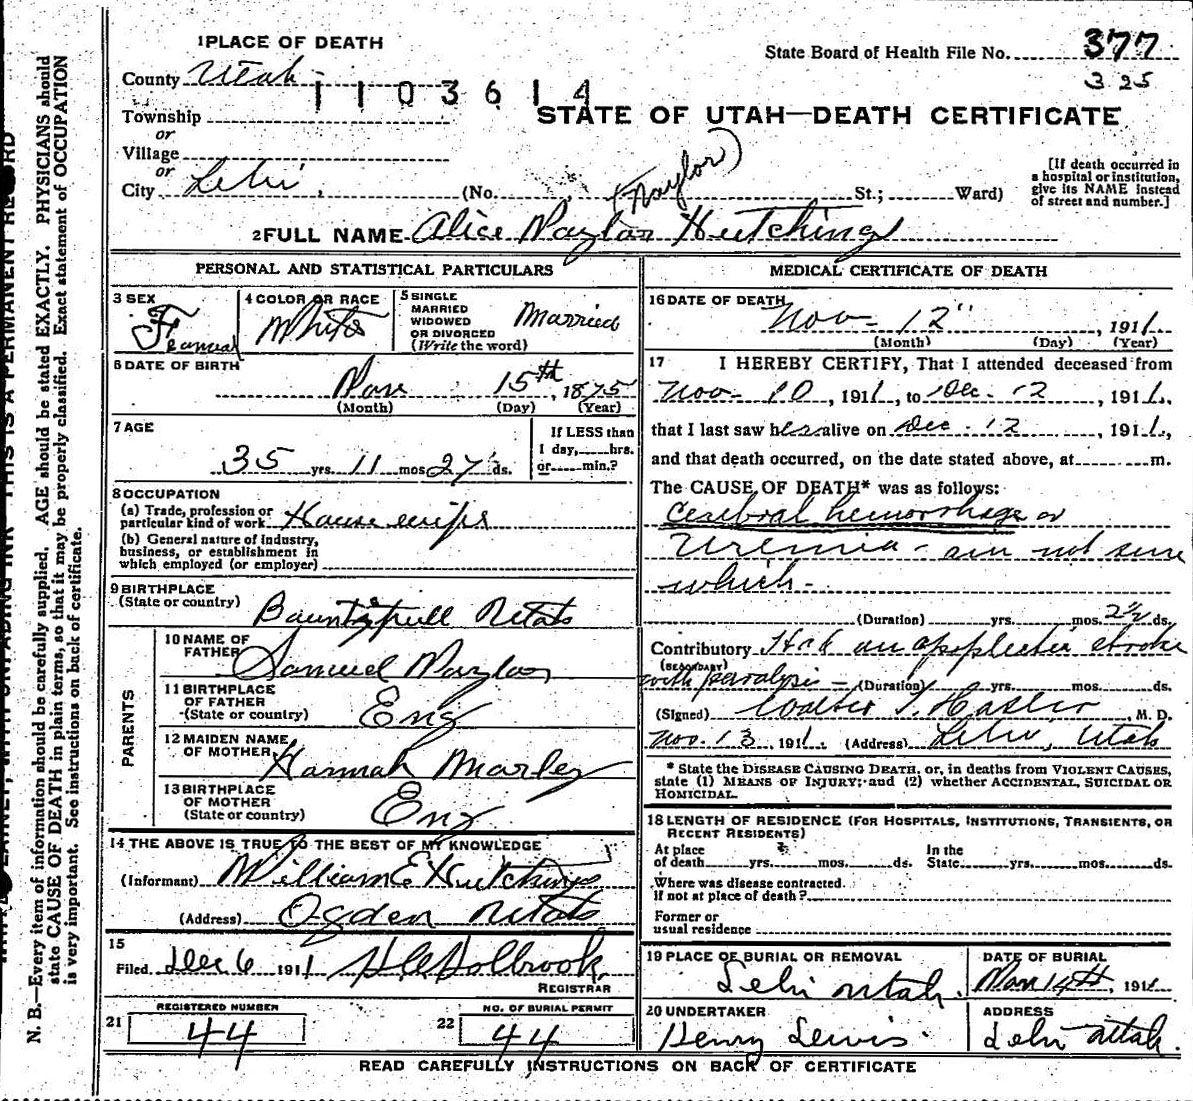 1 PLACE OF DEATH
State Board of Health File No. 377
325
County Utah
1103614
STATE OF UTAH—DEATH CERTIFICATE
Township
or
Village
or
City Lehi (No. St.; Ward)
(Naylor)
[If death occurred in
a hospital or institution,
give its NAME instead
of street and number.]
2 FULL NAME Alice Naylor Hutchings
PERSONAL AND STATISTICAL PARTICULARS
3 SEX
Femail
4 COLOR OR RACE
White
5 SINGLE
MARRIED
WIDOWED
OR DIVORCED
(Write the word)
Married
6 DATE OF BIRTH
Nov 15th, 1875
(Month) (Day) (Year)
7 AGE
35 yrs. 11 mos. 27 ds.
If LESS than
1 day, hrs.
or min.?
8 OCCUPATION
(a) Trade, profession or
particular kind of work Housewife
(b) General nature of industry,
business, or establishment in
which employed (or employer)
9 BIRTHPLACE
(State or country) Bountifull Utah
PARENTS
10 NAME OF
FATHER Samuel Naylor
11 BIRTHPLACE
OF FATHER
(State or country) Eng
12 MAIDEN NAME
OF MOTHER Hannah Marley
13 BIRTHPLACE
OF MOTHER
(State or country) Eng
14 THE ABOVE IS TRUE TO THE BEST OF MY KNOWLEDGE
(Informant) William E Hutchings
(Address) Ogden Utah
15
Filed Dec 6 1911 Holbrook
REGISTRAR
REGISTERED NUMBER
21 44
NO. OF BURIAL PERMIT
22 44
MEDICAL CERTIFICATE OF DEATH
16 DATE OF DEATH
Nov - 12", 1911
(Month) (Day) (Year)
17 I HEREBY CERTIFY, That I attended deceased from
Nov - 10, 1911, to Dec. 12, 1911,
that I last saw her alive on Dec. 12, 1911,
and that death occurred, on the date stated above, at m.
The CAUSE OF DEATH* was as follows:
Cerebral hemorrhage or
Uremia - am not sure
which -
(Duration) yrs. mos. 2½ ds.
Contributory Had an apoplectic stroke
(SECONDARY)
with paralysis - (Duration) yrs. mos. ds.
(Signed) M. D.
Nov. 13, 1911. (Address) Lehi, Utah
* State the DISEASE CAUSING DEATH, or, in deaths from VIOLENT CAUSES,
state (1) MEANS OF INJURY; and (2) whether ACCIDENTAL, SUICIDAL OR
HOMICIDAL.
18 LENGTH OF RESIDENCE (FOR HOSPITALS, INSTITUTIONS, TRANSIENTS, OR
RECENT RESIDENTS)
At place In the
of death yrs. mos. ds. State yrs. mos. ds.
Where was disease contracted.
if not at place of death?
Former or
usual residence
19 PLACE OF BURIAL OR REMOVAL
Lehi Utah.
DATE OF BURIAL
Nov 14th, 1911
20 UNDERTAKER
Henry Lewis.
ADDRESS
Lehi Utah.
READ CAREFULLY INSTRUCTIONS ON BACK OF CERTIFICATE
N. B.—Every item of information should be carefully supplied. AGE should be stated EXACTLY. PHYSICIANS should
state CAUSE OF DEATH in plain terms, so that it may be properly classified. Exact statement of OCCUPATION
is very important. See instructions on back of certificate.
THIS IS A PERMANENT RECORD